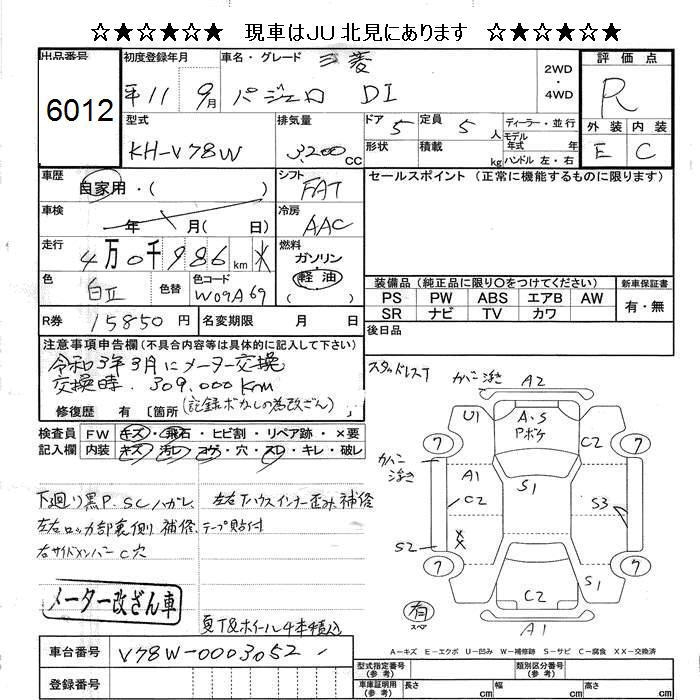 ☆★☆★☆★ 現車はJU北見にあります ☆★☆★☆★
出品番号 初度登録年月 車名・グレード 三菱 2WD 評価点
6012 平11 9月 パジェロ DI 4WD R
型式 排気量 ドア 5 定員 5人 ディーラー・並行 外装 内装
KH-V78W 3,200cc 形状 積載 kg モデル年式 年 ハンドル 左・右 E C
車歴 自家用・( ) シフト FAT セールスポイント(正常に機能するものに限ります)
車検 年 月( 日) 冷房 AAC
走行 4万0千986km 燃料 ガソリン 軽油
色 白II 色替 色コード W09A69 装備品(純正品に限り○をつけてください) 新車保証書
PS PW ABS エアB AW 有・無
SR ナビ TV カワ
R券 15850円 名変期限 月 日 後日品
注意事項申告欄(不具合内容等は具体的に記入して下さい)
令和3年3月にメーター交換
交換時 309,000Km
(記録ボかしの為改ざん)
修復歴 有[箇所
検査員 FW キズ・飛石・ヒビ割・リペア跡・×要
記入欄 内装 キズ 汚レ・コゲ・穴・スレ・キレ・破レ
下廻り黒P.SCハガレ、左右Tハウスインナー歪み補修
左右ロッカ部裏側補修、テープ貼付
右サイドメンバーC穴
メーター改ざん車
夏T&ホイール4本積込
車台番号 V78W-0003052
登録番号
スタッドレスT カバー浮き A2
U1 A・S Pボケ C2
7 7
カバー浮き A1 C2 S1 S3
S2 XX
7 7
C2 S1
有 スペ A1
A-キズ E-エクボ U-凹み W-補修跡 S-サビ C-腐食 XX-交換済
型式指定番号 類別区分番号
車庫証明用(参考) 長さ cm 幅(参考) cm 高さ(参考) cm